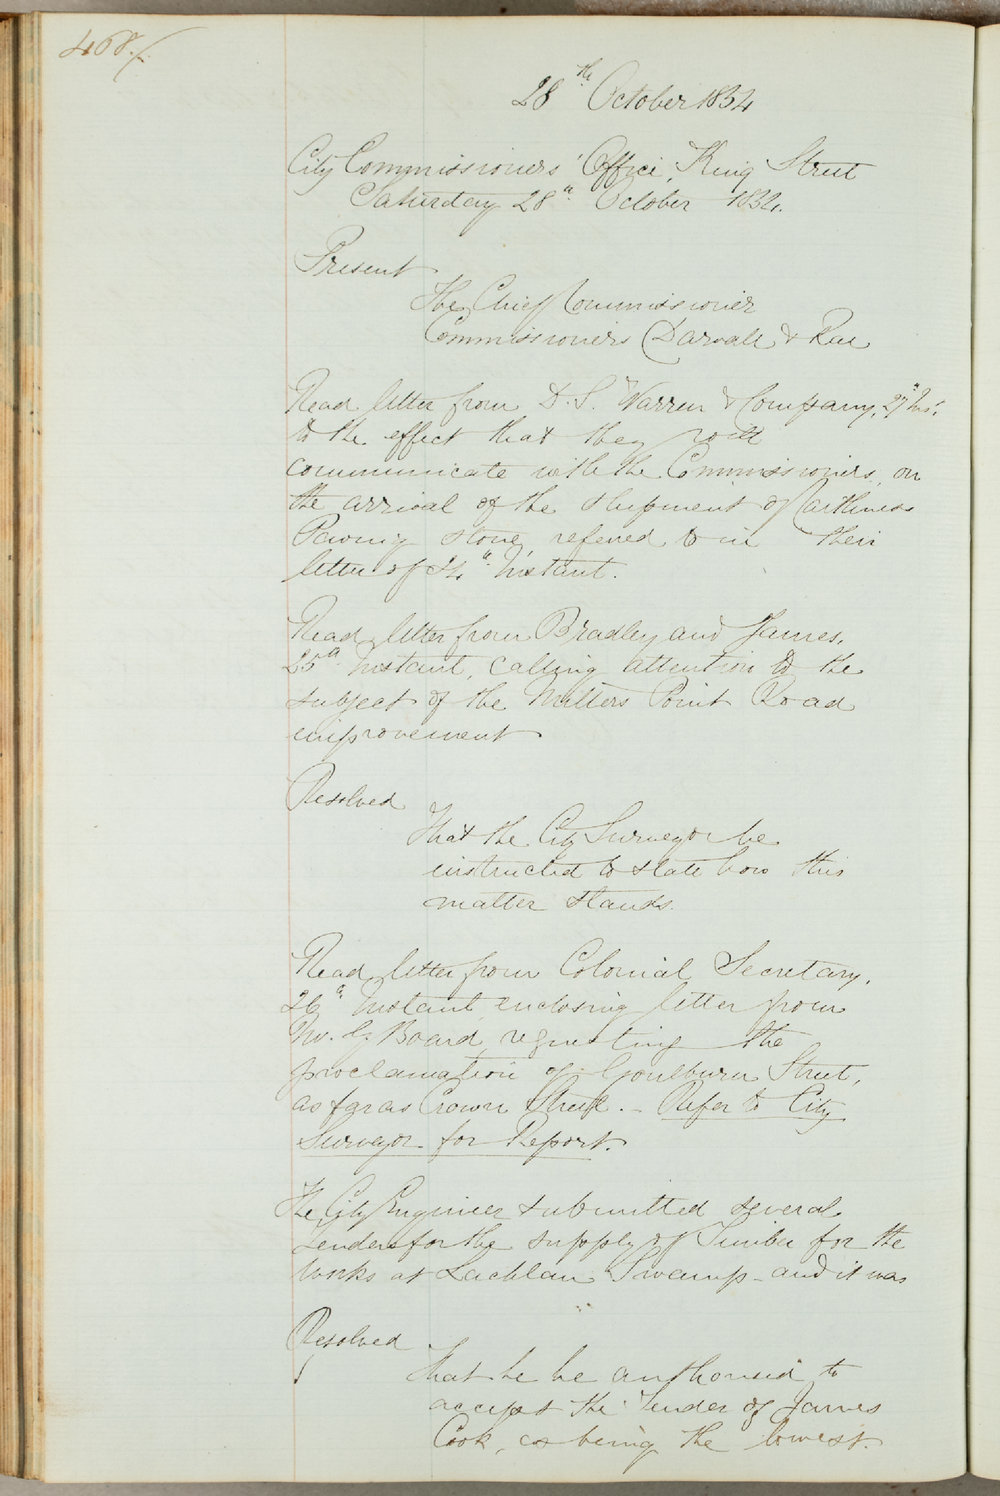 468./.
28th October 1854
City Commissioners' Office, King Street
Saturday 28th October 1854.
Present
The Chief Commissioner
Commissioners Darvall & Rae
Read letter from D. S. Warren & Company, 27th Ins.
to the effect that they will
communicate with the Commissioners, on
the arrival of the shipment of Caithness
Paving stone referred to in their
letter of 24th Instant.
Read letter from Bradley and James,
25th Instant, calling attention to the
subject of the Millers Point Road
improvement
Resolved
That the City Surveyor be
instructed to state how this
matter stands.
Read letter from Colonial Secretary,
26th Instant, enclosing letter from
Board requesting the
proclamation of Goulburn Street,
as far as Crown Street. - Refer to City
Surveyor for Report.
The City Engineer submitted several
Tenders for the supply of Timber for the
Works at Lachlan Swamp - and it was
Resolved
That he be authorised to
accept the Tender of James
Cook, as being the lowest.